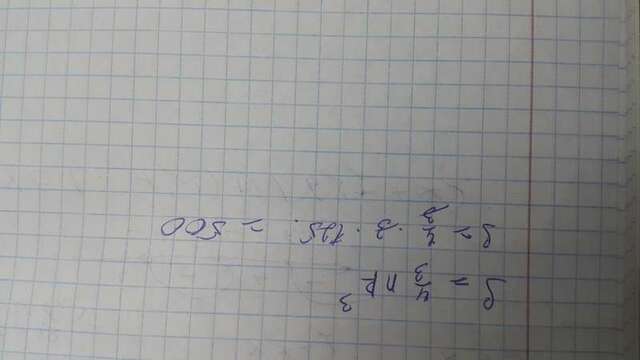 S = 4/3 πR³
S = 4/3 · 3 · 125. = 500